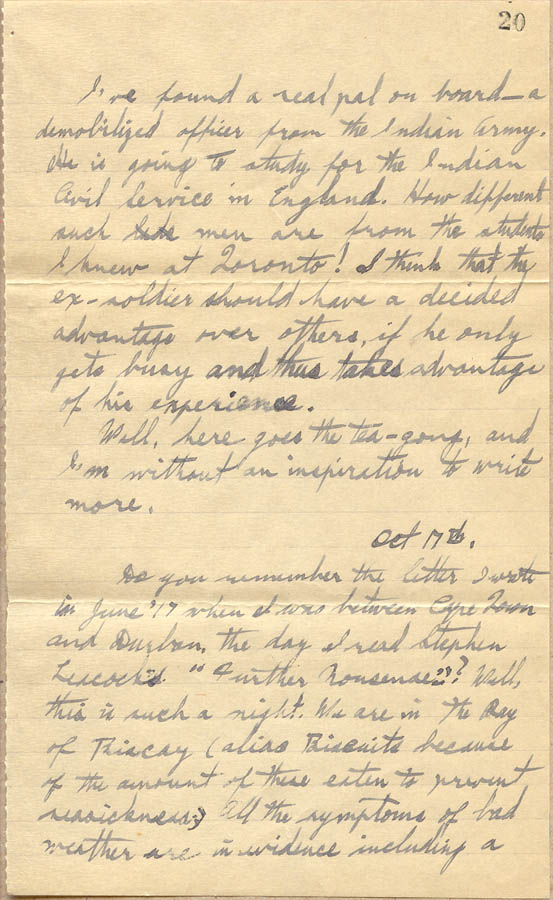 20
I've found a real pal on board—a
demobilized officer from the Indian Army.
He is going to study for the Indian
Civil Service in England. How different
such men are from the students
I knew at Toronto! I think that the
ex-soldier should have a decided
advantage over others, if he only
gets busy and thus takes advantage
of his experience.
Well, here goes the tea-gong, and
I'm without an inspiration to write
more.
Oct 17th.
Do you remember the letter I wrote
in June '17 when I was between Cape Town
and Durban, the day I read Stephen
Leacock's "Further Nonsense"? Well,
this is such a night. We are in the Bay
of Biscay (alias Biscuits because
of the amount of these eaten to prevent
seasickness.) All the symptoms of bad
weather are in evidence including a